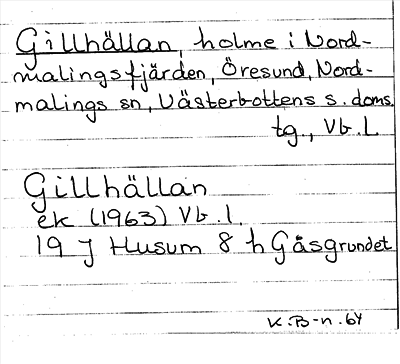 Gillhällan, holme i Nord-
malingsfjärden, Öresund, Nord-
malings sn, Västerbottens s. doms.
tg., Vb. l.
Gillhällan
ek (1963) Vb. l.
19 J Husum 8 h Gåsgrundet
K.B-n. 64